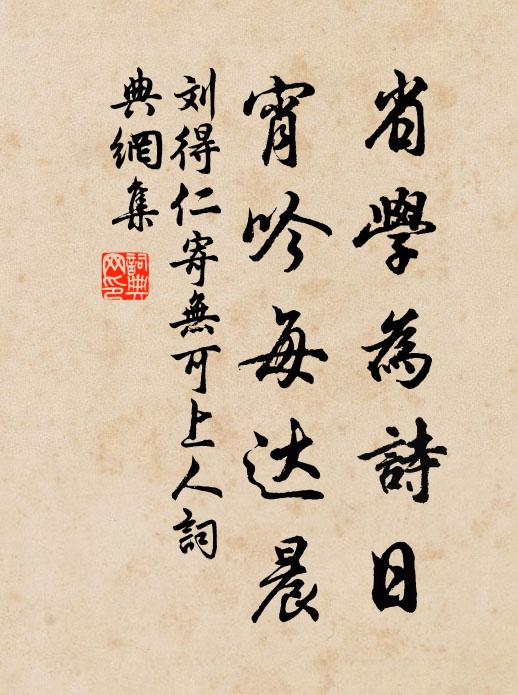 省學為詩日
宵吟每达晨
刘得仁寄無可上人詞
典網集
詞典
网印